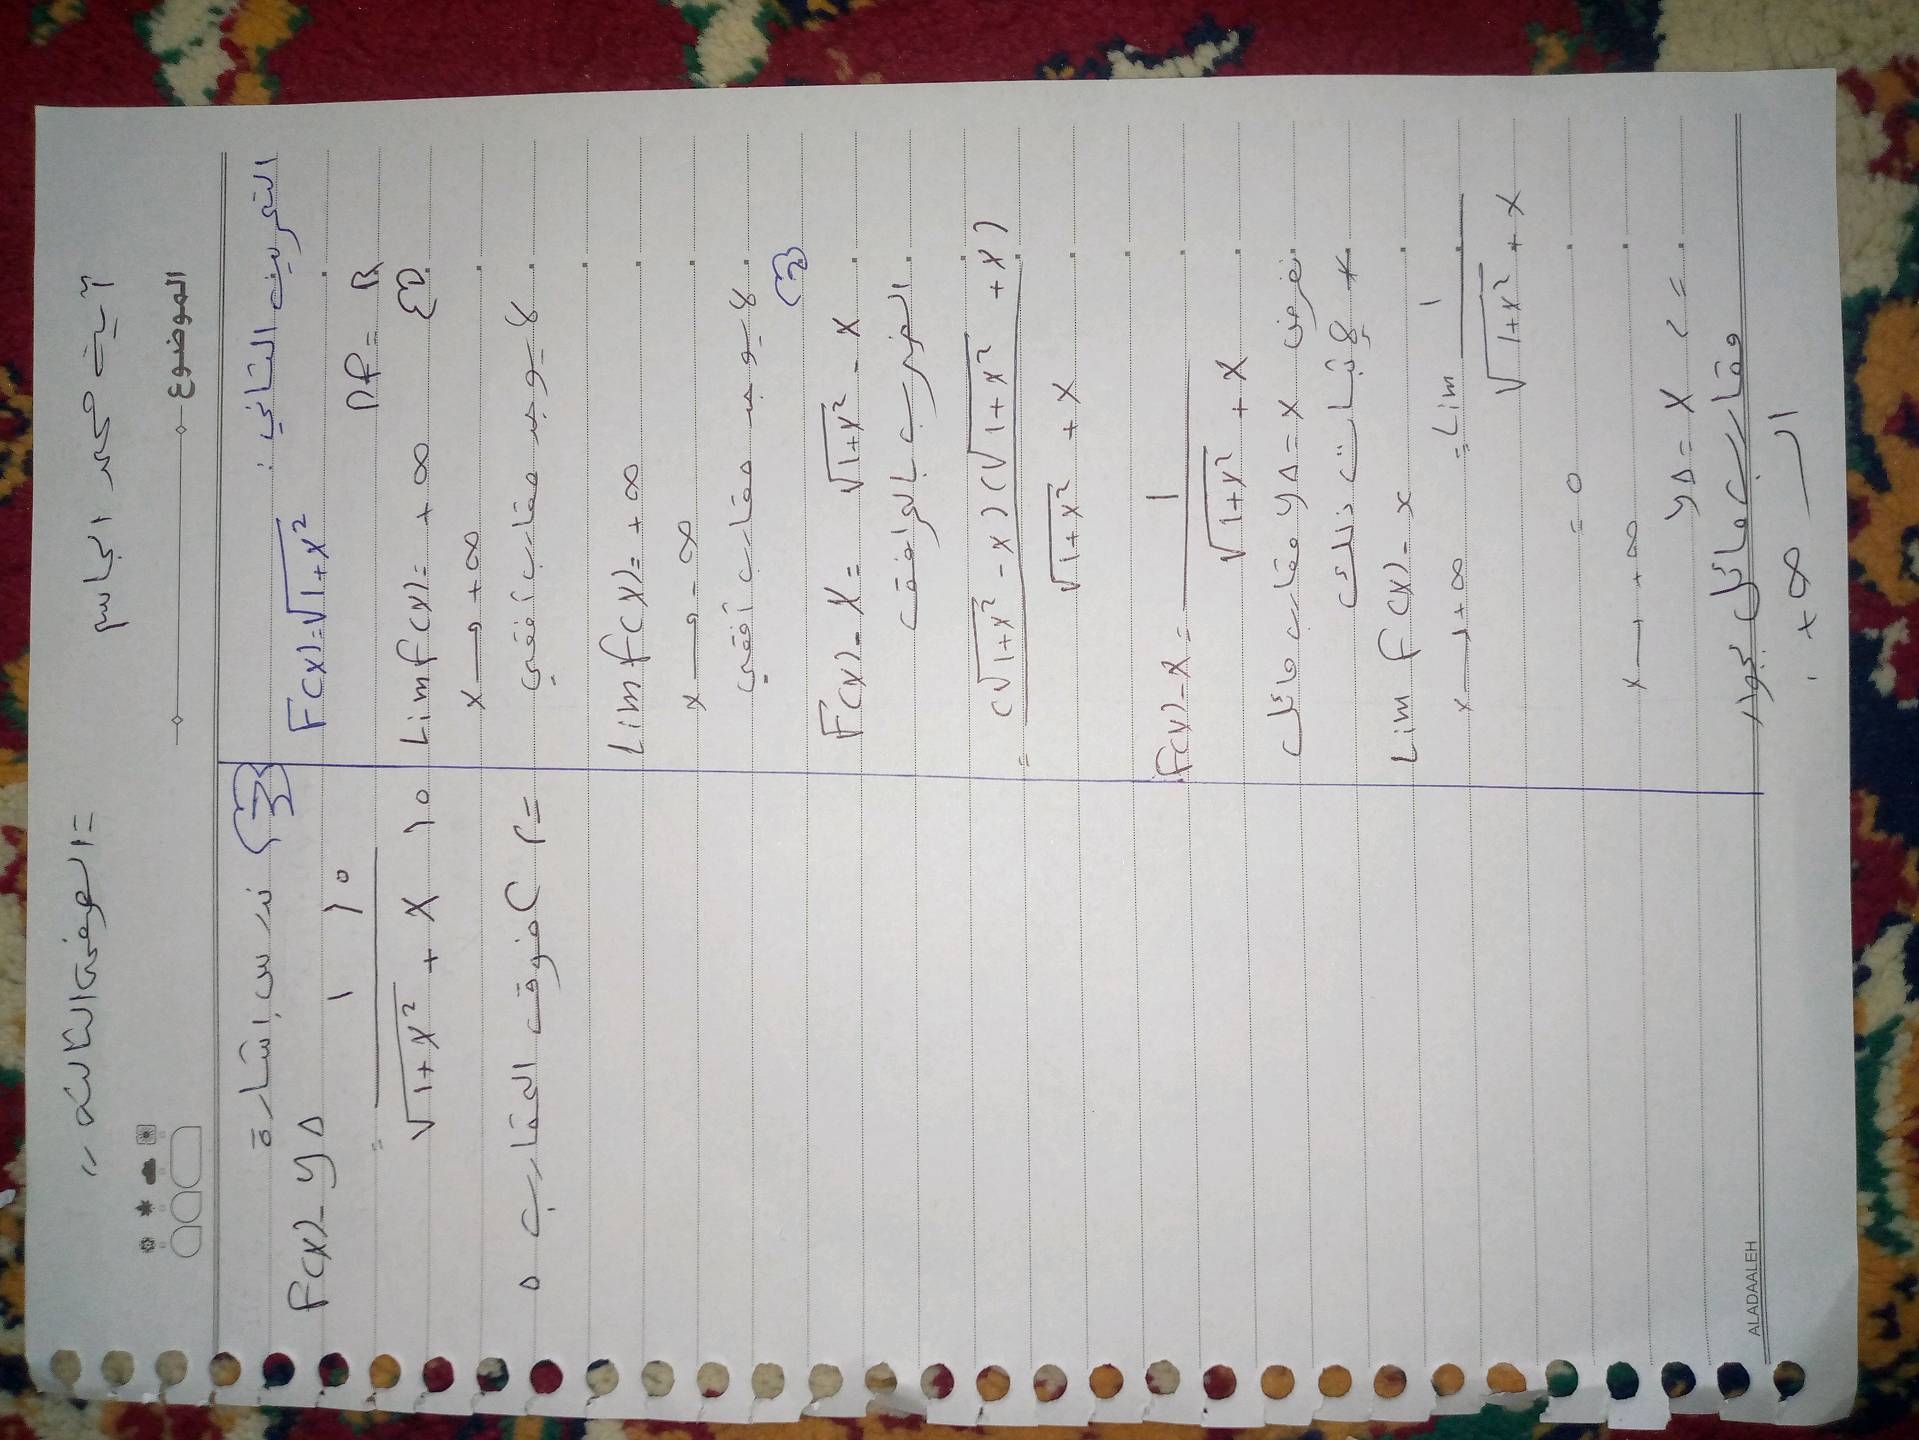 آية محمد الجاسم
=الصفحة الثالثة"
الموضوع
التمرين الثاني:
F(x)=√1+x²
DF = R
Lim f(x) = +∞
x → +∞
لا يوجد مقارب أفقي
Lim f(x) = +∞
x → -∞
لا يوجد مقارب أفقي
(2)
F(x) - x = √1+x² - x
الضرب بالمرافق
= (√1+x² - x)(√1+x² + x)
√1+x² + x
F(x) - x = 1
√1+x² + x
نفرض yΔ = x مقارب مائل
لإثبات ذلك
Lim F(x) - x
x → +∞
= Lim 1
√1+x² + x
= 0
x → +∞
yΔ = x <=
مقارب مائل بجوار
الـ ∞+
(3) ندرس إشارة
F(x) - yΔ
= 1 > 0
√1+x² + x > 0
=> C فوق المقارب Δ
ALADAALEH